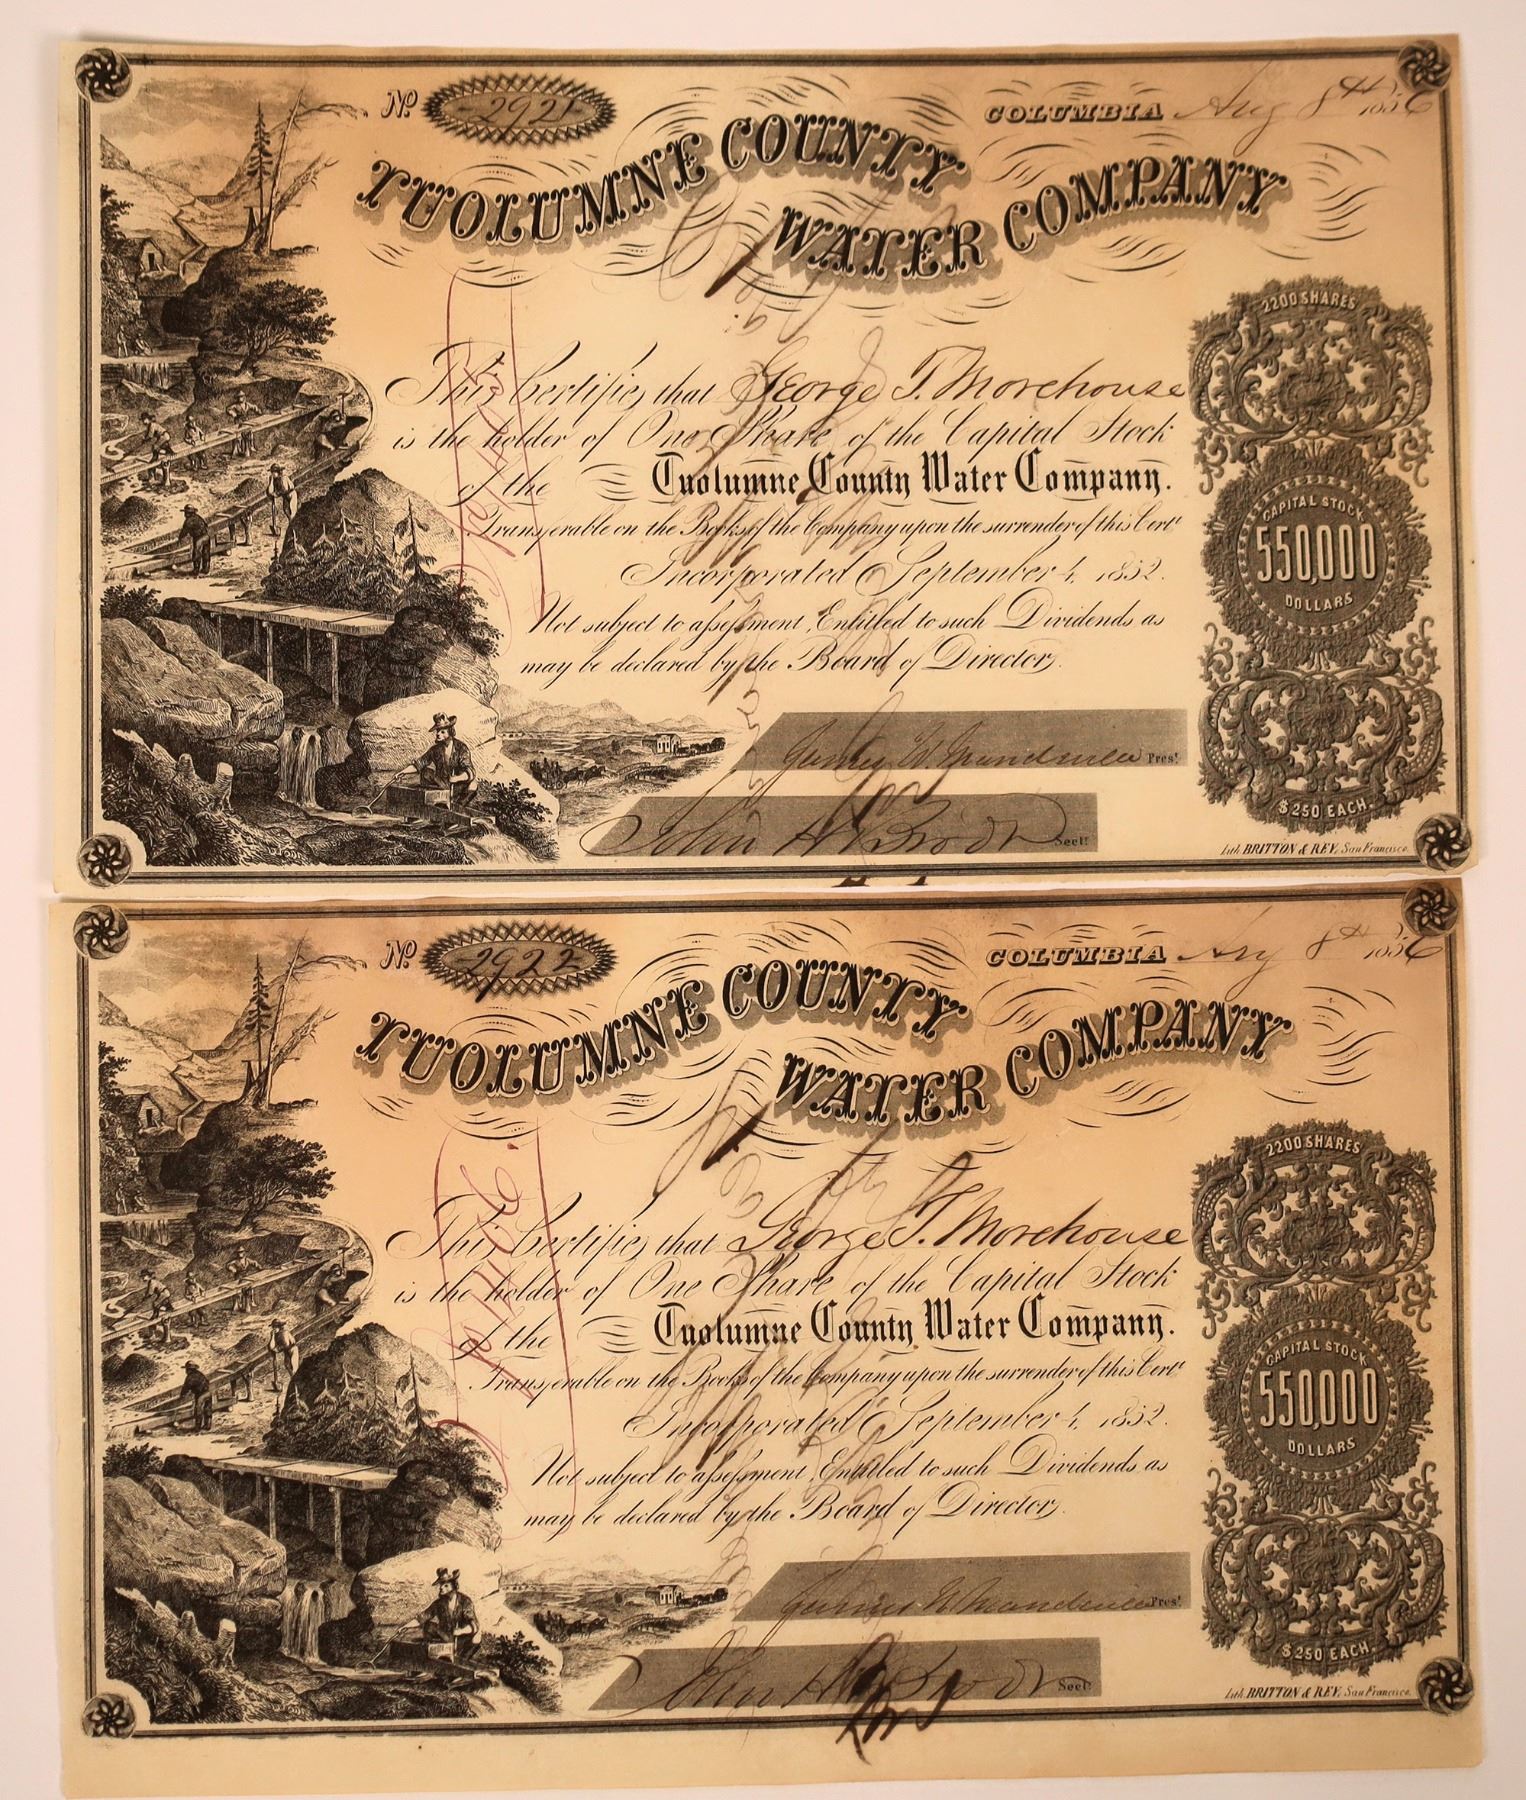 No. 2921
COLUMBIA Aug 8th 1856
TUOLUMNE COUNTY
WATER COMPANY
This Certifies that George T. Morehouse
is the holder of One Share of the Capital Stock
of the Tuolumne County Water Company.
Transferable on the Books of the Company upon the surrender of this Certt
Incorporated September 4, 1852.
Not subject to assessment, Entitled to such Dividends as
may be declared by the Board of Directors.
Prest
John H Sect:
2200 SHARES
CAPITAL STOCK
550,000
DOLLARS
$250 EACH.
Lith. BRITTON & REY, San Francisco.
No. 2922
COLUMBIA Aug 8th 1856
TUOLUMNE COUNTY
WATER COMPANY
This Certifies that George T. Morehouse
is the holder of One Share of the Capital Stock
of the Tuolumne County Water Company.
Transferable on the Books of the Company upon the surrender of this Certt
Incorporated September 4, 1852.
Not subject to assessment, Entitled to such Dividends as
may be declared by the Board of Directors.
Prest
John H Sect:
2200 SHARES
CAPITAL STOCK
550,000
DOLLARS
$250 EACH.
Lith. BRITTON & REY, San Francisco.